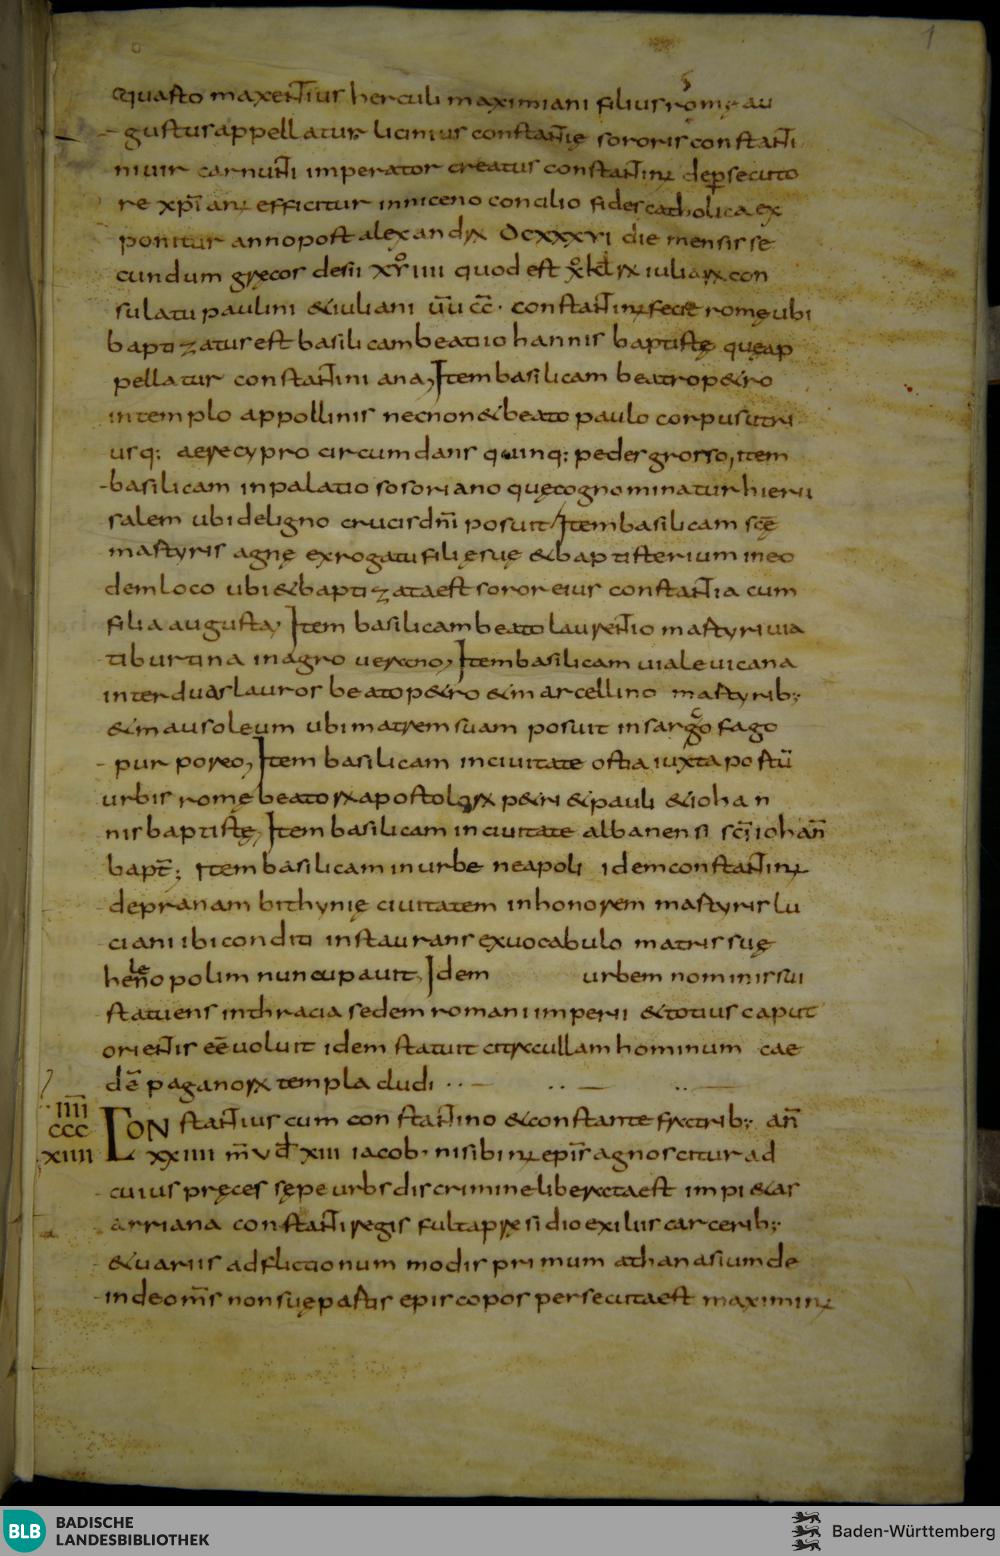 1
quarto maxentius herculi maximiani filius romę au
gustus appellatur licinius constantię sororis constanti
ni uir carnunti imperator creatus constantinus de persecuto
re xp̄ianus efficitur in niceno concilio fides catholica ex
ponitur anno post alexandrum DCXXXVI die mensis se
cundum gręcos desii XVIIII quod est kl iuliarum con
sulatu paulini & iuliani ūū c̄c̄. constantinus fecit romę ubi
baptizatus est basilicam beati iohannis baptistę quę ap
pellatur constantiniana, Item basilicam beatro p&ro
in templo appollinis necnon & beato paulo corpus utri
usq; aere cypro circumdans quinq; pedes grosso, item
basilicam in palatio sosoriano quę cognominatur hieru
salem ubi de ligno crucis dn̄i posuit, Item basilicam scę̄
martyris agnę ex rogatu filię suę & baptisterium in eo
dem loco ubi & baptizata est soror eius constantia cum
filia augusta, Item basilicam beato laurentio martyri uia
tiburtina in agro uerano, Item basilicam uia leuicana
inter duas lauros beato p&ro & marcellino martyrib;
& mausoleum ubi matrem suam posuit in sargofago
purporeo, Item basilicam in ciuitate ostia iuxta portū
urbis romę beatorum apostolorum p&ri & pauli & iohan
nis baptistę, Item basilicam in ciuitate albanensi sc̄i iohan̄
bapt̄; Item basilicam in urbe neapoli idem constantinus
depranam bithynię ciuitatem in honorem martyris lu
ciani ibi conditi instaurans ex uocabulo matris suę
helenopolim nuncupauit, Idem urbem nominis sui
statuens in thracia sedem romani imperii & totius caput
orientis eē uoluit idem statuit citra ullam hominum cae
dē paganorum templa cludi
IIII CCC XIIII
Constantius cum constantino & constante fratrib; an̄
XXIIII m̄ V d XIII iacob. nisibinus epi͞s agnoscitur ad
cuius pręces sępe urbs discrimine liberata est impi&as
arriana constanti regis fulta presidio exiliis carcerib;
& uariis adflictionum modis primum athanasium de
inde om̄s non suę partis episcopos persecuta est maximinus
BLB BADISCHE LANDESBIBLIOTHEK
Baden-Württemberg